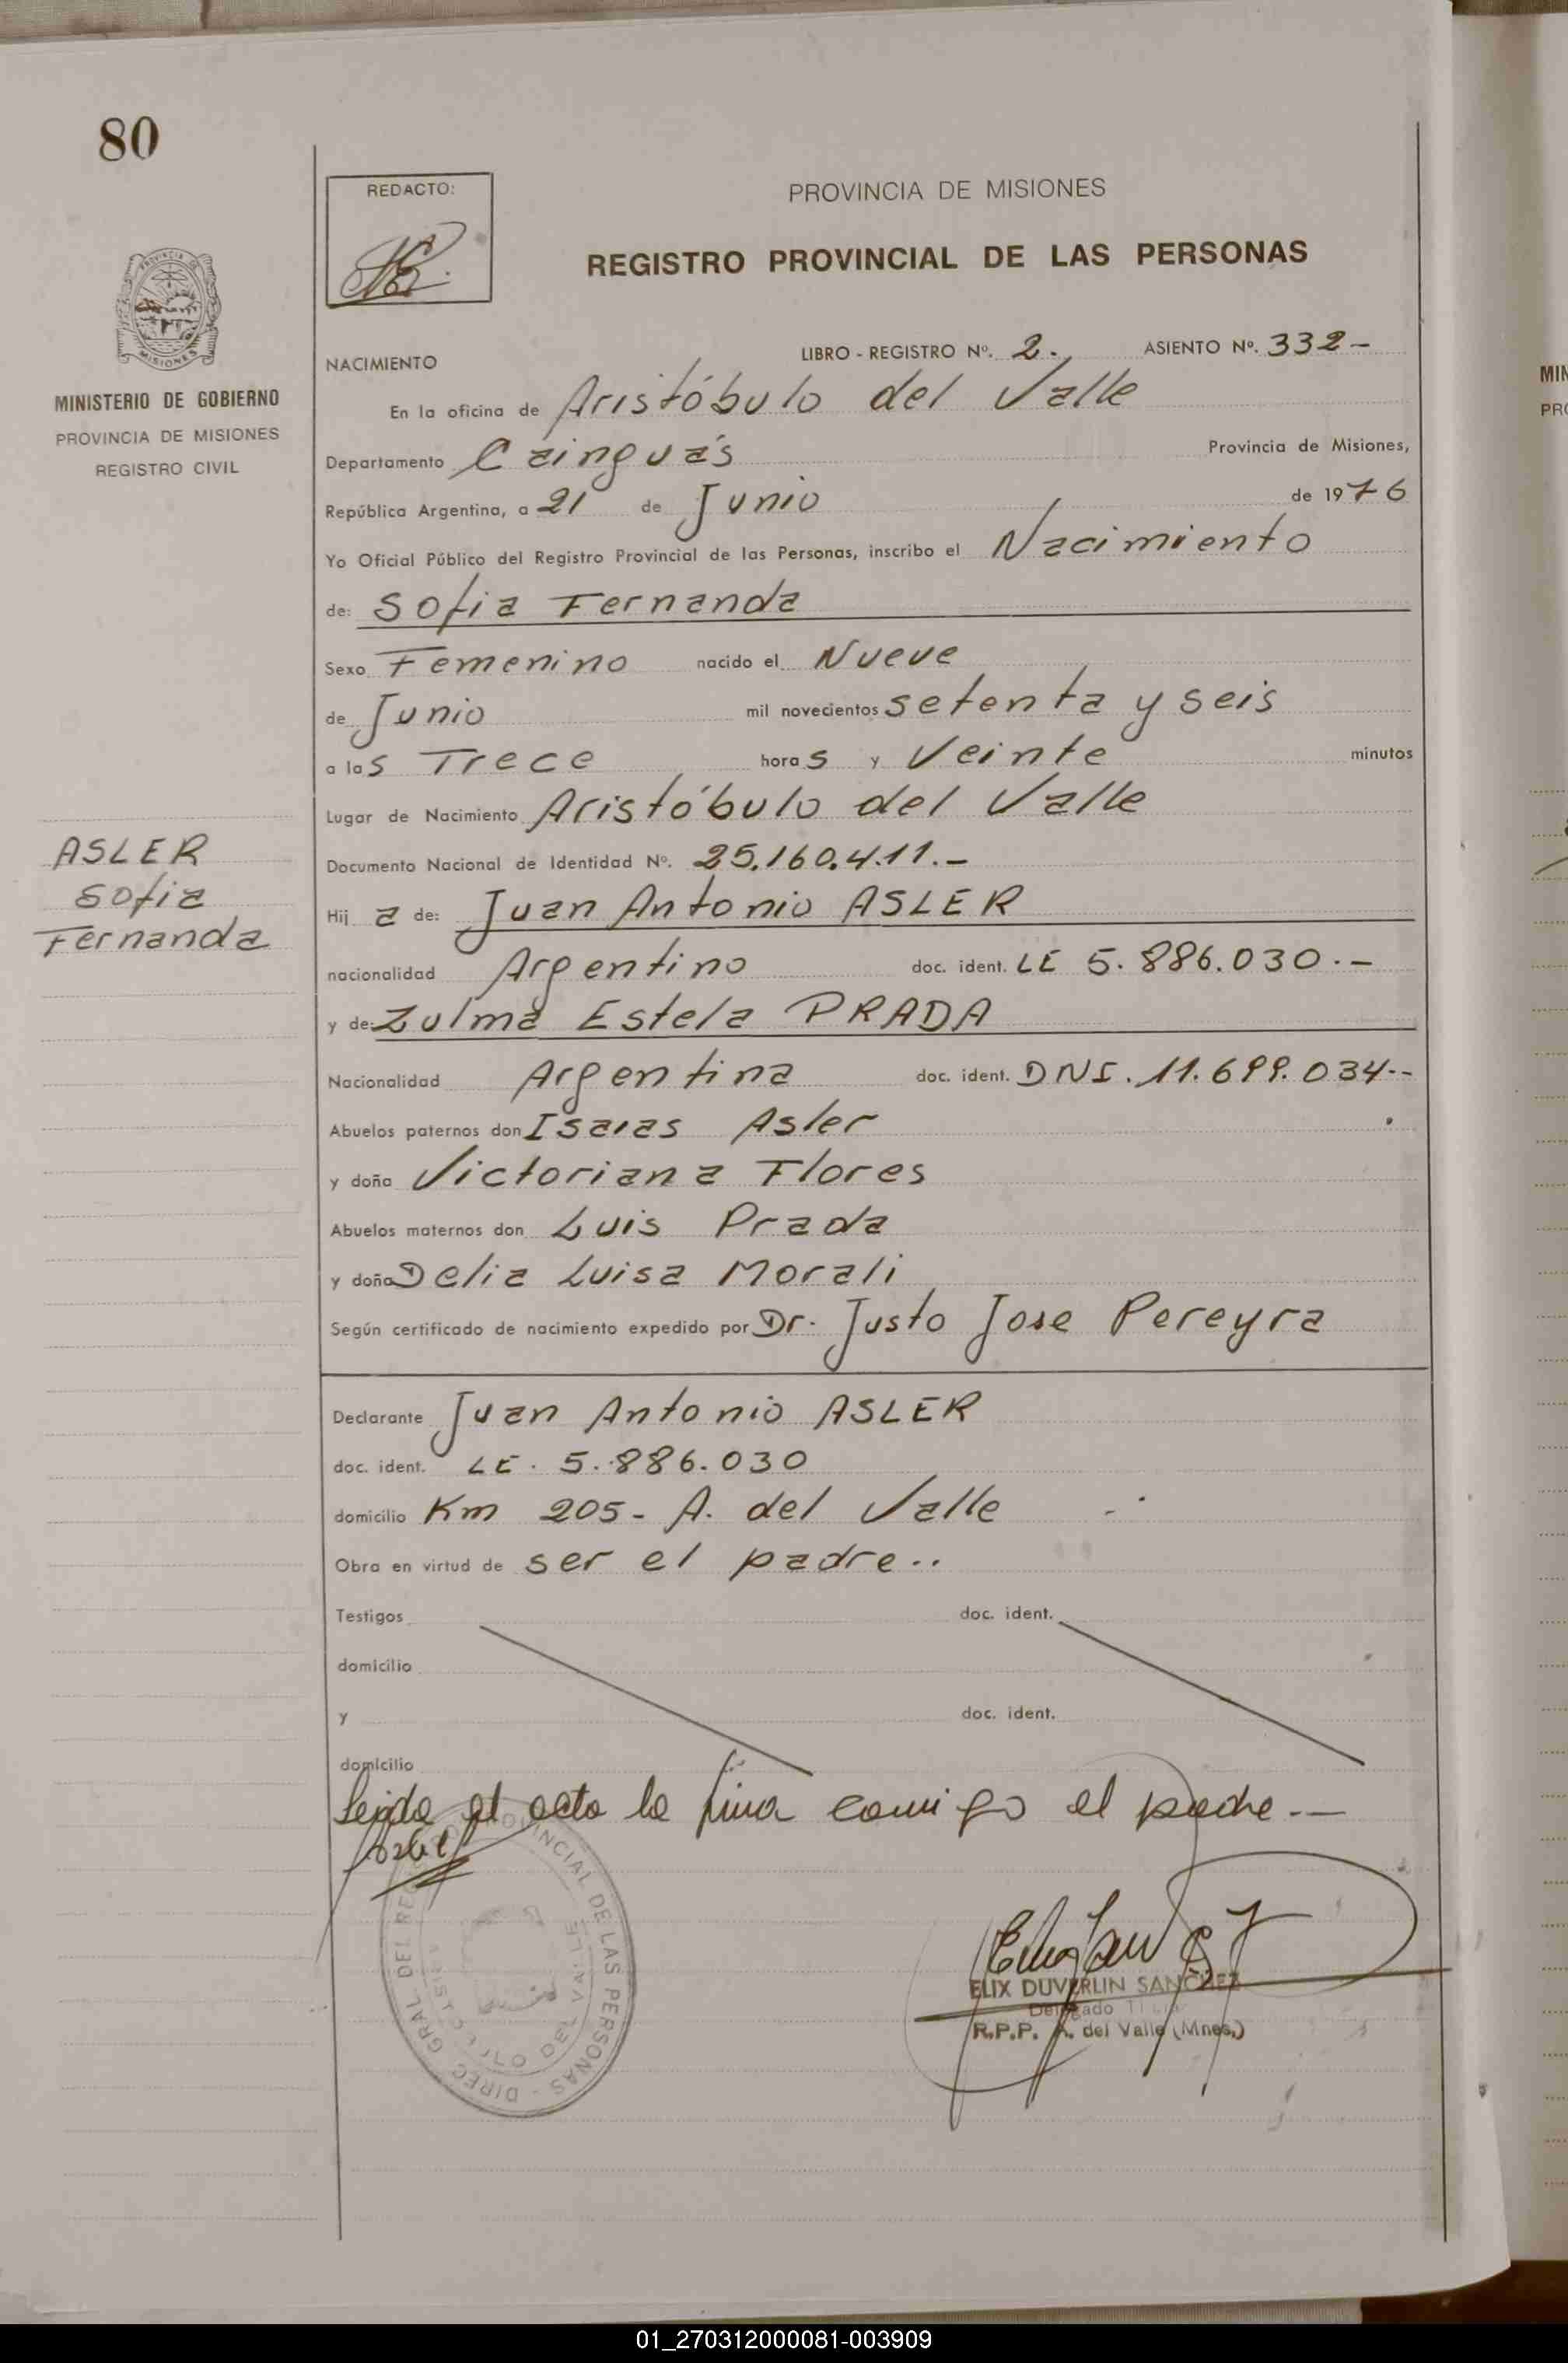 80
REDACTO:
PROVINCIA DE MISIONES
REGISTRO PROVINCIAL DE LAS PERSONAS
MINISTERIO DE GOBIERNO
PROVINCIA DE MISIONES
REGISTRO CIVIL
NACIMIENTO LIBRO - REGISTRO Nº. 2.- ASIENTO Nº. 332-
En la oficina de Aristóbulo del Valle
Departamento Cainguás Provincia de Misiones,
República Argentina, a 21 de Junio de 1976
Yo Oficial Público del Registro Provincial de las Personas, inscribo el Nacimiento
de: Sofia Fernanda
Sexo Femenino nacido el Nueve
de Junio mil novecientos setenta y seis
a las Trece horas y Veinte minutos
Lugar de Nacimiento Aristóbulo del Valle
ASLER
Sofia
Fernanda
Documento Nacional de Identidad Nº. 25.160.411.-
Hija de: Juan Antonio ASLER
nacionalidad Argentino doc. ident. LE 5.886.030.-
y de: Zulma Estela PRADA
Nacionalidad Argentina doc. ident. DNI. 11.699.034.-
Abuelos paternos don Isaias Asler
y doña Victoriana Flores
Abuelos maternos don Luis Prada
y doña Delia Luisa Morali
Según certificado de nacimiento expedido por Dr. Justo Jose Pereyra
Declarante Juan Antonio ASLER
doc. ident. LE. 5.886.030
domicilio Km 205- A. del Valle -.
Obra en virtud de ser el padre..
Testigos doc. ident.
domicilio
y doc. ident.
domicilio
Leida el acta la firma conmigo el padre.-
DIREC. GRAL. DEL REGISTRO PROVINCIAL DE LAS PERSONAS -
DEL VALLE
ELIX DUVERLIN SANCHEZ
Delegado
R.P.P. A. del Valle (Mnes.)
MIN
PRO
01_270312000081-003909